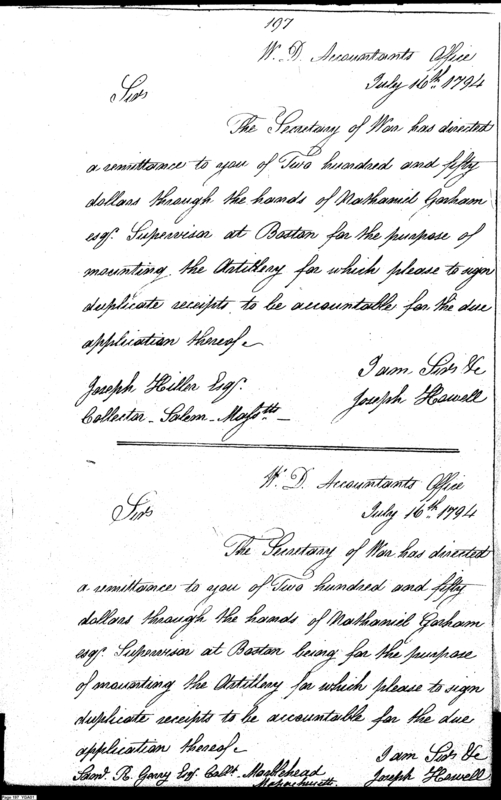 197
W. D. Accountants Office
July 16th. 1794
Sir
The Secretary of War has directed
a remittance to you of Two hundred and fifty
dollars through the hands of Nathaniel Gorham
esqr. Supervisor at Boston for the purpose of
mounting the Artillery for which please to sign
duplicate receipts to be accountable for the due
application thereof.
I am Sir &c
Joseph Howell
Joseph Hiller Esqr.
Collector - Salem - Masstts -
W. D. Accountants Office
July 16th. 1794
Sir
The Secretary of War has directed
a remittance to you of Two hundred and fifty
dollars through the hands of Nathaniel Gorham
esqr. Supervisor at Boston being for the purpose
of mounting the Artillery for which please to sign
duplicate receipts to be accountable for the due
application thereof.
I am Sir &c
Joseph Howell
Saml. R. Gerry Esqr. Collr. Marblehead
Massachusetts.